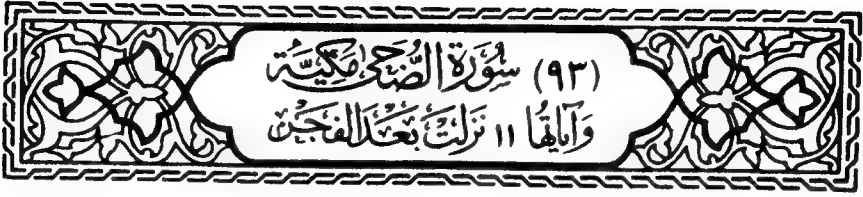 (٩٣) سُوْرَةِ الضُّحَىٰ مَكِيَّة
وَآيَاتُهَا ١١ نَزَلَتْ بَعْدَ الفَجْرِ